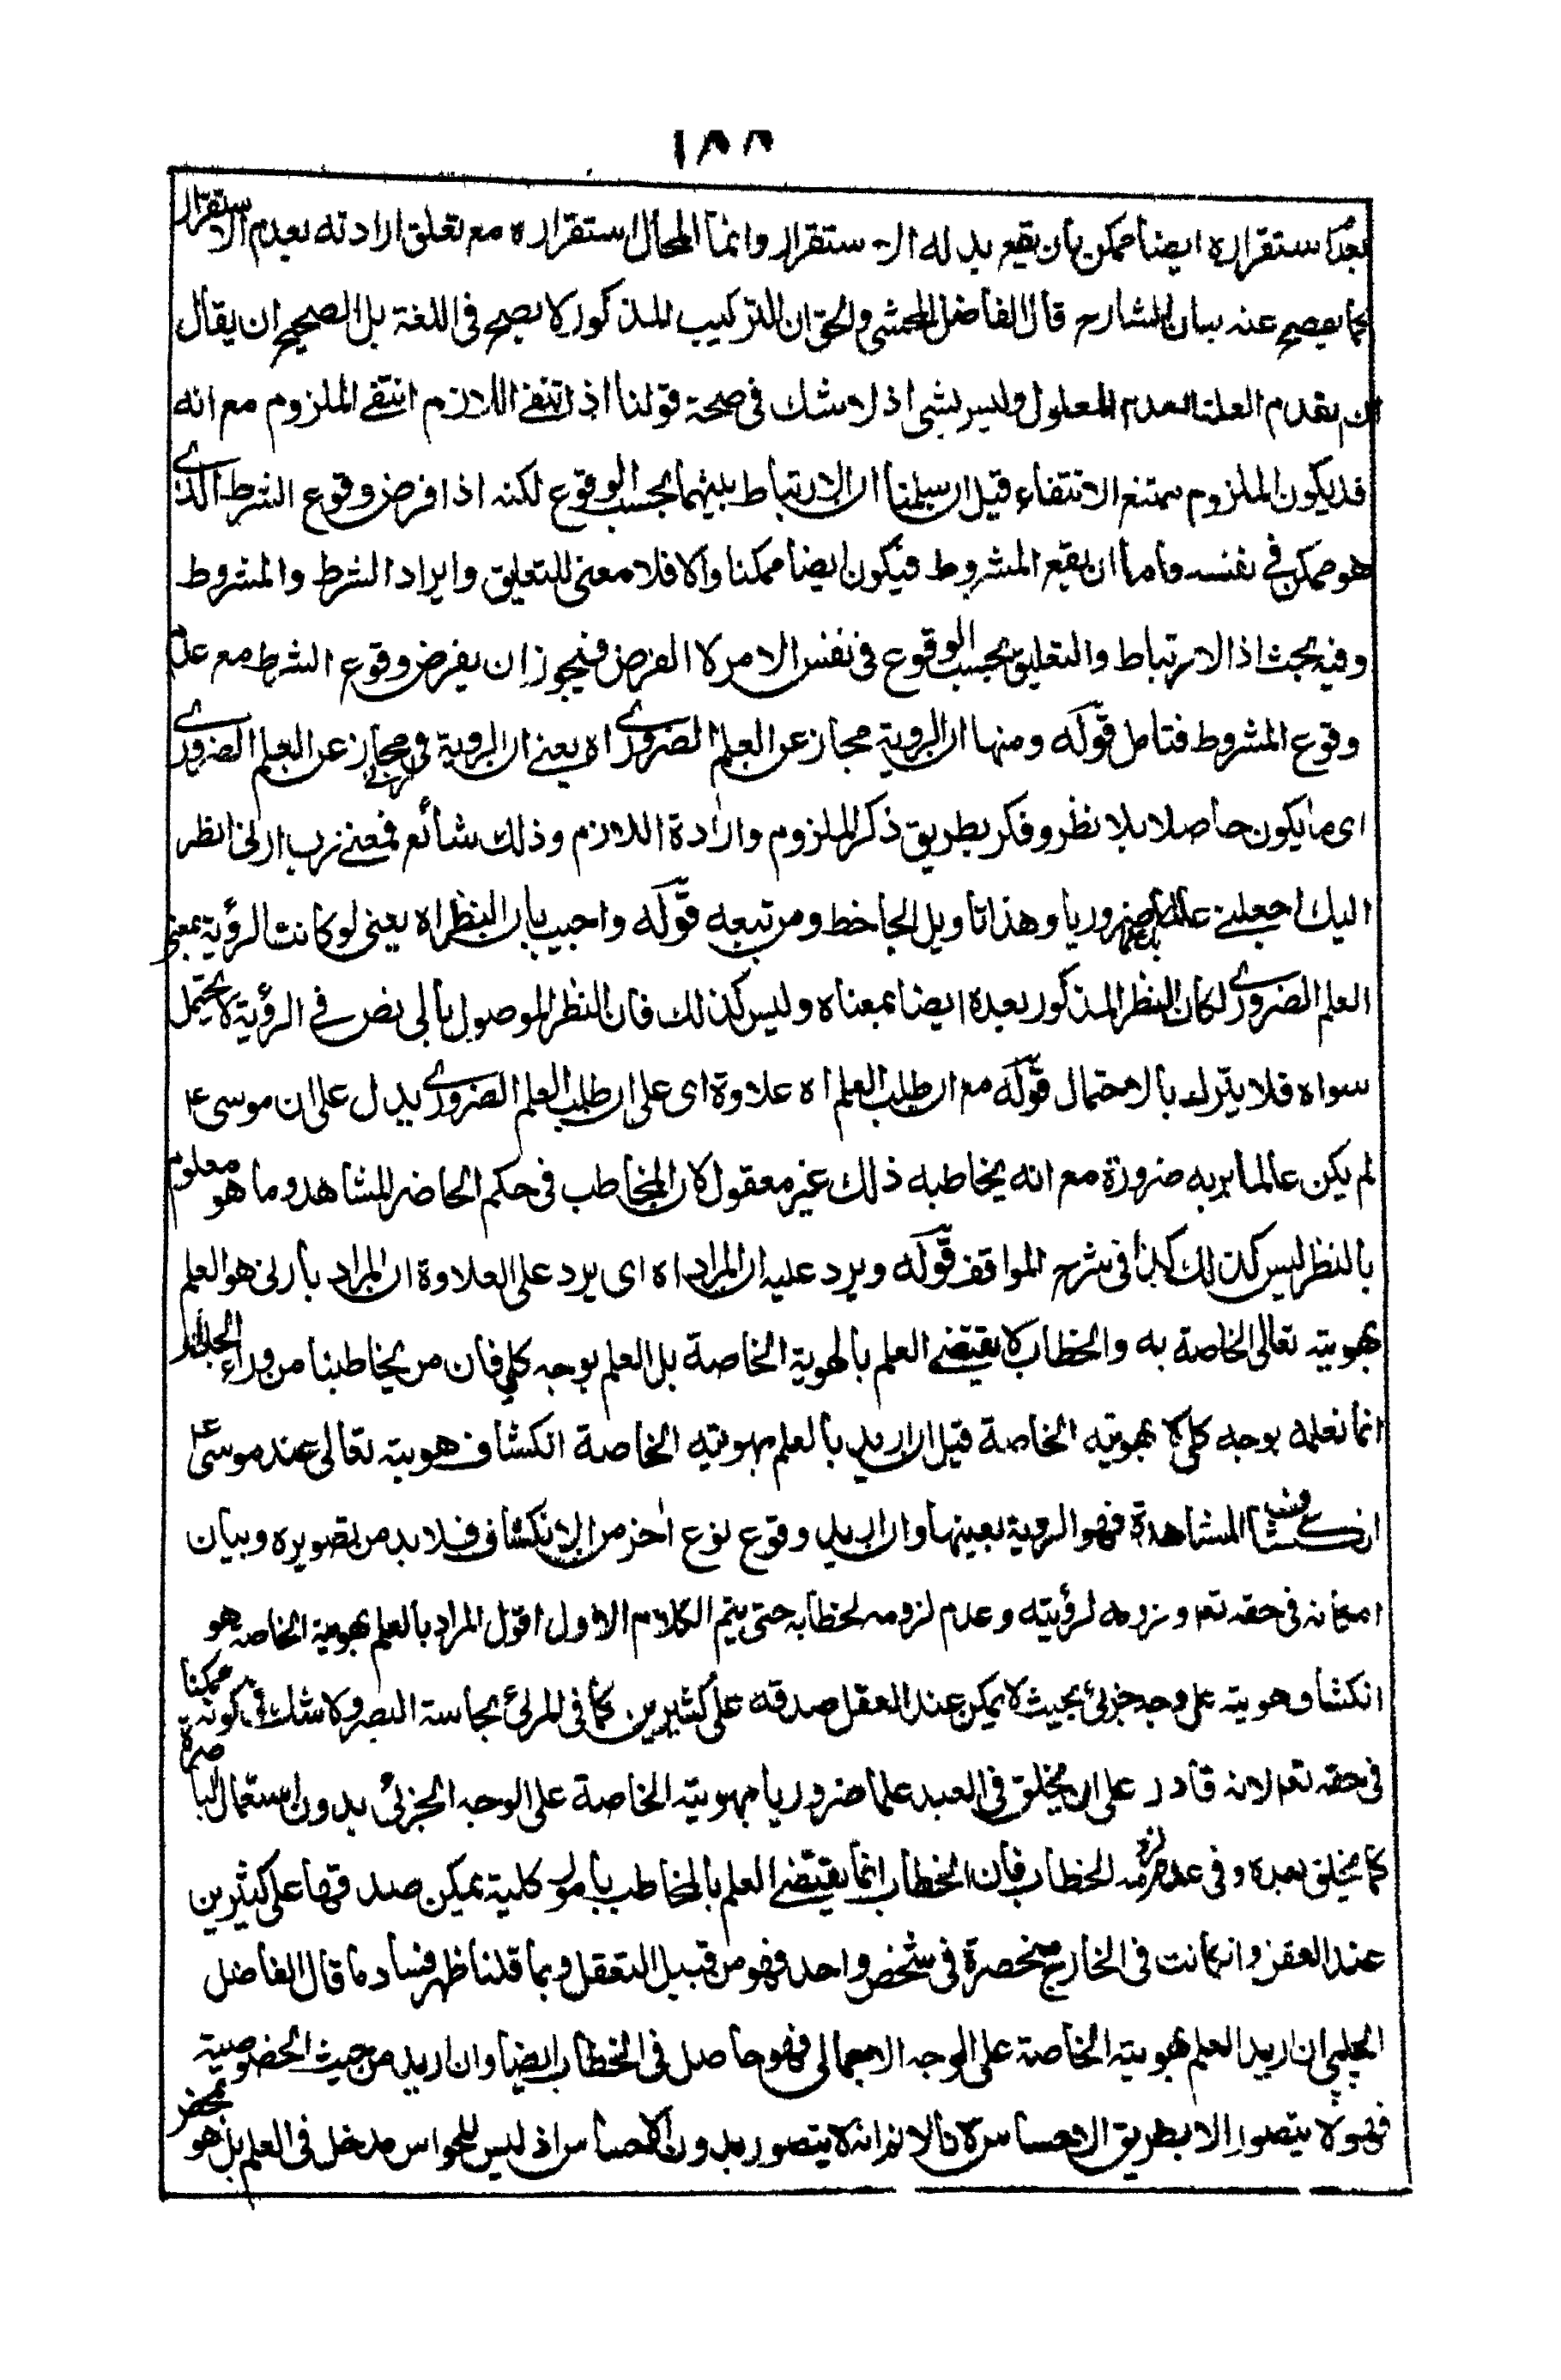 ١٨٨
بعد استقراره ايضا ممكن بأن يقع بدله الاستقرار وانما المحال استقراره مع تعلق ارادته بعدم الاستقرار
كما يفصح عنه بيان الشارح قال الفاضل المحشي والحق ان التركيب المذكور لا يصح في اللغة بل الصحيح ان يقال
العلة العدم المعلول وليس بشي اذ لا شك في صحة قولنا اذا انتفى اللازم انتفى الملزوم مع انه
قد يكون الملزوم ممتنع الانتفاء قيل ان سلمنا ان الارتباط بينهما بحسب الوقوع لكنه اذا فرض وقوع الشرط الذي
هو ممكن في نفسه وأما ان يقع المشروط فيكون ايضا ممكنا وألا فلا معنى للتعليق وايراد الشرط والمشروط
وفيه بحث اذ الارتباط والتعليق بحسب الوقوع في نفس الامر لا الفرض فيجوز ان يفرض وقوع الشرط مع عدم
وقوع المشروط فتامل قوله ومنها ان الروية مجاز عن العلم الضروري اه يعني ان الروية في مجاز عن العلم الضروري
اي ما يكون حاصلا بلا نظر وفكر بطريق ذكر الملزوم وارادة اللازم وذلك شائع فمعنى رب ارني انظر
اليك اجعلني عالما ضروريا وهذا تأويل الجاحظ ومن تبعه قوله واجيب بان النظر اه يعني لو كانت الرؤية بمعنى
العلم الضروري لكان النظر المذكور بعده ايضا بمعناه وليس كذلك فان النظر الموصول بالى نص في الرؤية لا يحتمل
سواه فلا يترك بالاحتمال قوله مع ان طلب العلم اه علاوة اى على ان طلب العلم الضروري يدل على ان موسى ع
لم يكن عالما بربه ضرورة مع انه يخاطبه ذلك غير معقول لان المخاطب في حكم الحاضر المشاهد وما هو معلوم
بالنظر ليس كذلك كذا في شرح المواقف قوله ويرد عليه ان المراد اه اى يرد على العلاوة ان المراد بأرني هو العلم
بهويته تعالى الخاصة به والخطاب لا يقتضي العلم بالهوية الخاصة بل العلم بوجه كلي فان من يخاطبنا من وراء الجدار
انما نعلمه بوجه كلي لا بهويته الخاصة قيل ان اريد بالعلم بهويته الخاصة انكشاف هويته تعالى عند موسى ع
انكشافا المشاهدة فهو الروية بعينها وان اريد وقوع نوع اخر من الانكشاف فلا بد من تصويره وبيان
امكانه في حقه تعم ولزومه لرؤيته وعدم لزومه لخطابه حتى يتم الكلام الاول اقول المراد بالعلم بهويته الخاصه هو
انكشاف هويته على وجه جزئي بحيث لا يمكن عند العقل صدقه على كثيرين كما في المرئي بحاسة البصر ولا شك في كونه ممكنا
في حقه تعم لانه قادر على ان يخلق في العبد علما ضروريا بهويته الخاصة على الوجه الجزئي بدون استعمال الباصرة
كما يخلق بعده وفي عدم لزومه الخطاب فان الخطاب انما يقتضي العلم بالمخاطب بأمور كلية يمكن صدقها على كثيرين
عند العقل وان كانت في الخارج منحصرة في شخص واحد فهو من قبيل التعقل وبما قلنا ظهر فساد ما قال الفاضل
الچلپي ان اريد العلم بهويته الخاصة على الوجه الاجمالي فهو حاصل في الخطاب ايضا وان اريد من حيث الخصوصية
فهو لا يتصور الا بطريق الاحساس لانا لا نم انه لا يتصور بدون الاحساس اذ ليس للحواس مدخل في العلم بل هو محض